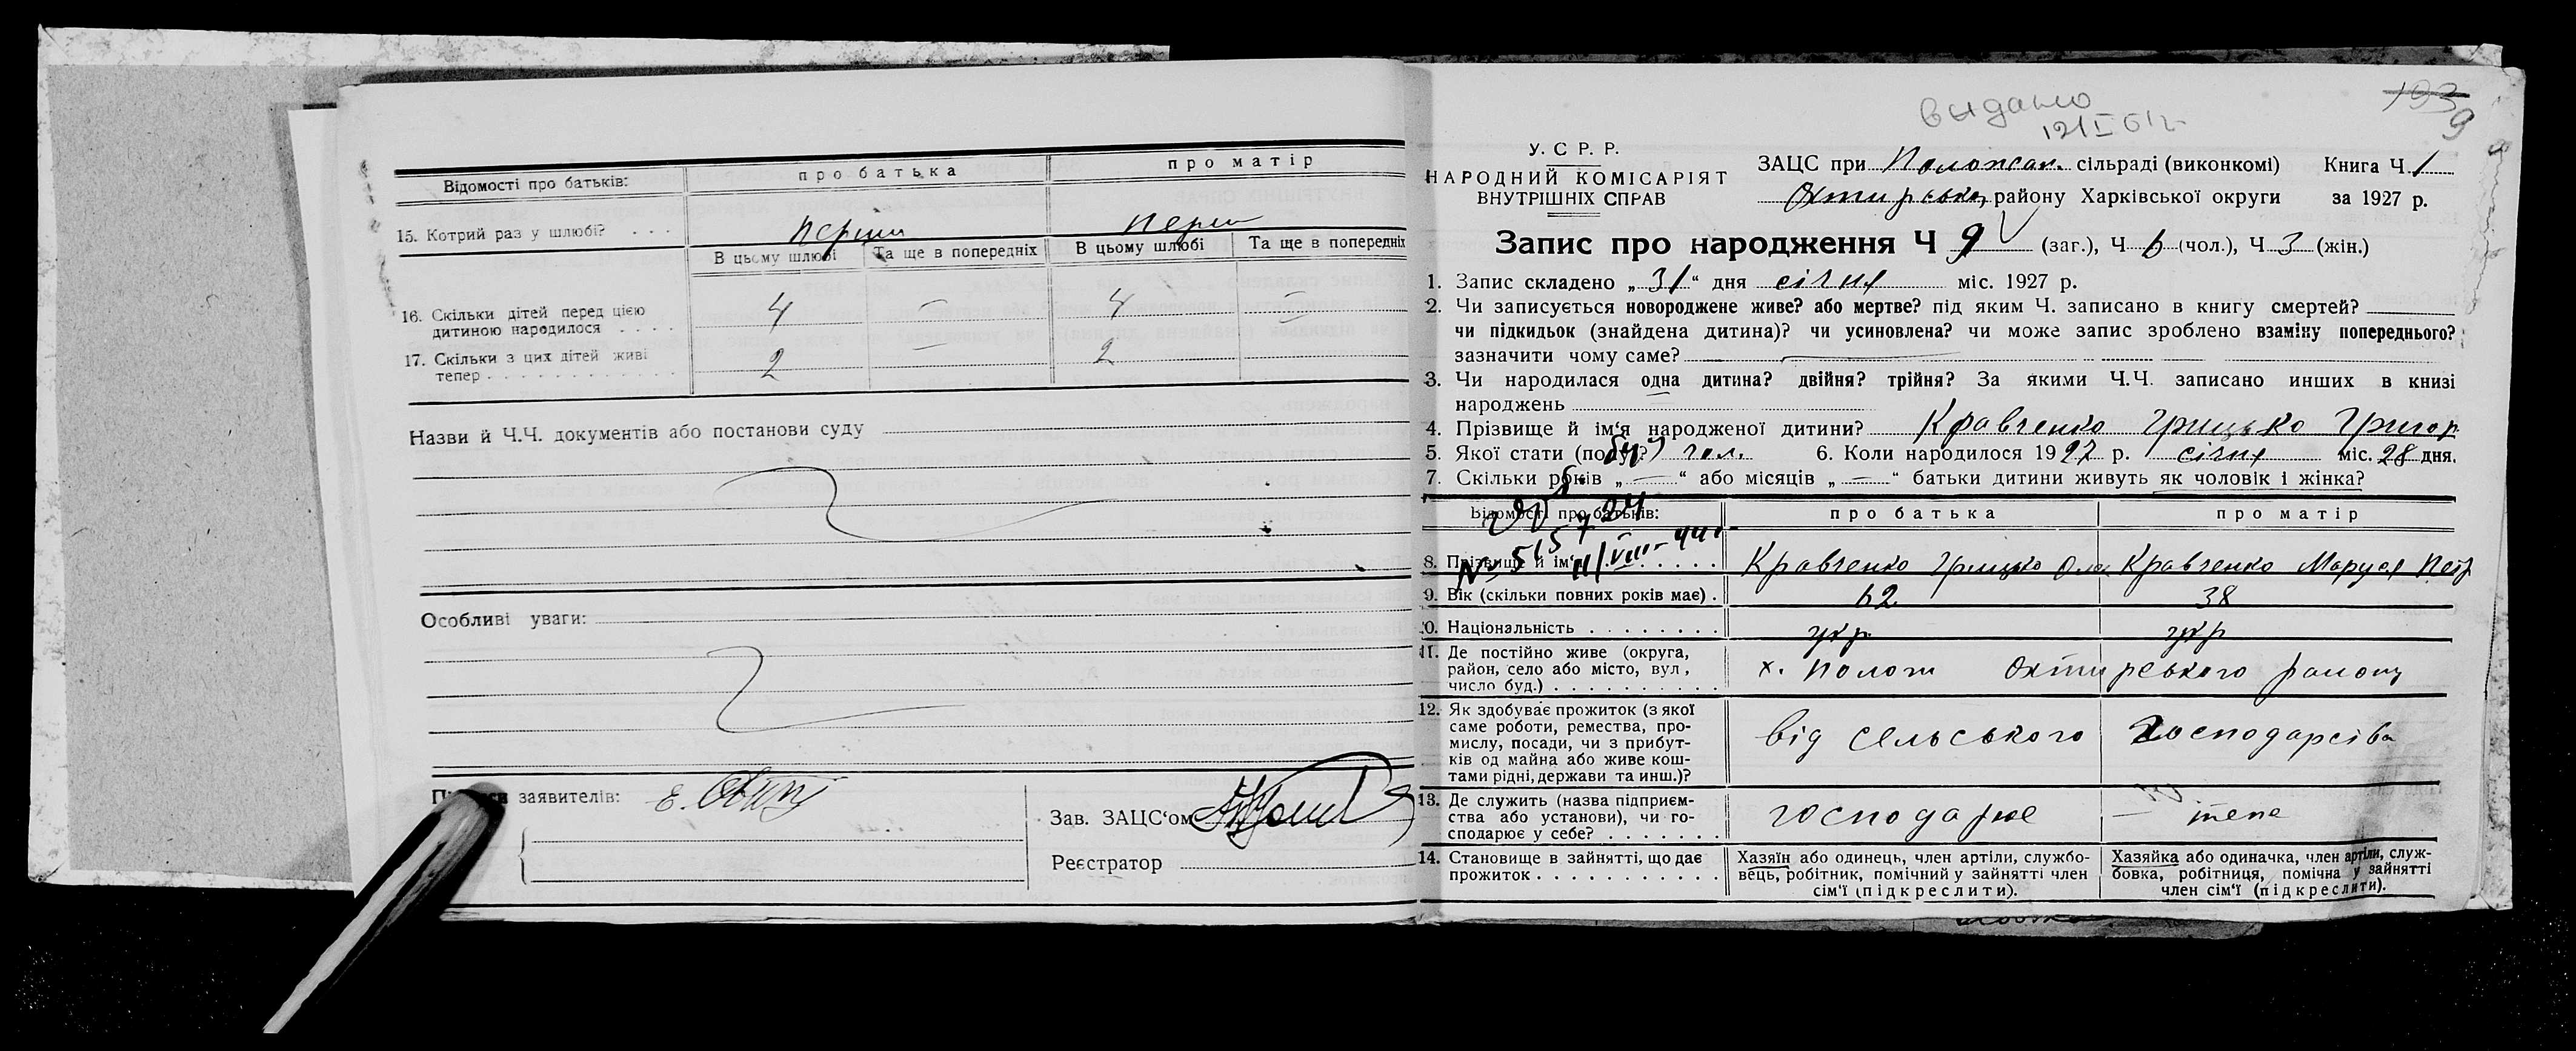 Відомості про батьків: про батька про матір
15. Котрий раз у шлюбі? . . . перший перш
В цьому шлюбі Та ще в попередніх В цьому шлюбі Та ще в попередніх
16. Скільки дітей перед цією
дитиною народилося . . . . 4 — 4 —
17. Скільки з цих дітей живі
тепер . . . . . . . . . . . . 2 — 2
Назви й Ч.Ч. документів або постанови суду
Особливі уваги:
заявителів: Е.
Зав. ЗАЦС‘ом
Реєстратор
выдано
12/I 61г
193
9
У.С Р. Р.
НАРОДНИЙ КОМІСАРІЯТ
ВНУТРІШНІХ СПРАВ
ЗАЦС при Положан. сільраді (виконкомі) Книга Ч. 1
Охтирськ. району Харківської округи за 1927 р.
Запис про народження Ч 9 (заг.), Ч 6 (чол.), Ч 3 (жін.)
1. Запис складено „31“ дня січня міс. 1927 р.
2. Чи записується новороджене живе? або мертве? під яким Ч. записано в книгу смертей?
чи підкидьок (знайдена дитина)? чи усиновлена? чи може запис зроблено взаміну попереднього?
зазначити чому саме? —
3. Чи народилася одна дитина? двійня? трійня? За якими Ч.Ч. записано инших в книзі
народжень —
4. Прізвище й ім‘я народженої дитини? Кравченко Грицько Григор
5. Якої стати (полу?) чол. 6. Коли народилося 1927 р. січня міс. 28 дня.
7. Скільки років „—“ або місяців „—“ батьки дитини живуть як чоловік і жінка?
Відомості про батьків: про батька про матір
8. Прізвище й ім‘я . . . . . Кравченко Грицько Кравченко Маруся Петр
№ 515 11/VIII-44г
9. Вік (скільки повних років має) . 62 38
10. Національність . . . . . . . . укр. укр
11. Де постійно живе (округа,
район, село або місто, вул,
число буд.) . . . . . . . . . . х. Пологи Охтирського району
12. Як здобуває прожиток (з якої
саме роботи, ремества, про-
мислу, посади, чи з прибут-
ків од майна або живе кош-
тами рідні, держави та инш.)? від сельського господарства
13. Де служить (назва підприєм-
ства або установи), чи го-
сподарює у себе? . . . . . . . господарює — теж
14. Становище в зайнятті, що дає
прожиток . . . . . . . . . . .
Хазяїн або одинець, член артіли, службо-
вець, робітник, помічний у зайнятті член
сім‘ї (підкреслити).
Хазяйка або одиначка, член артіли, служ-
бовка, робітниця, помічна у зайнятті
член сім‘ї (підкреслити).